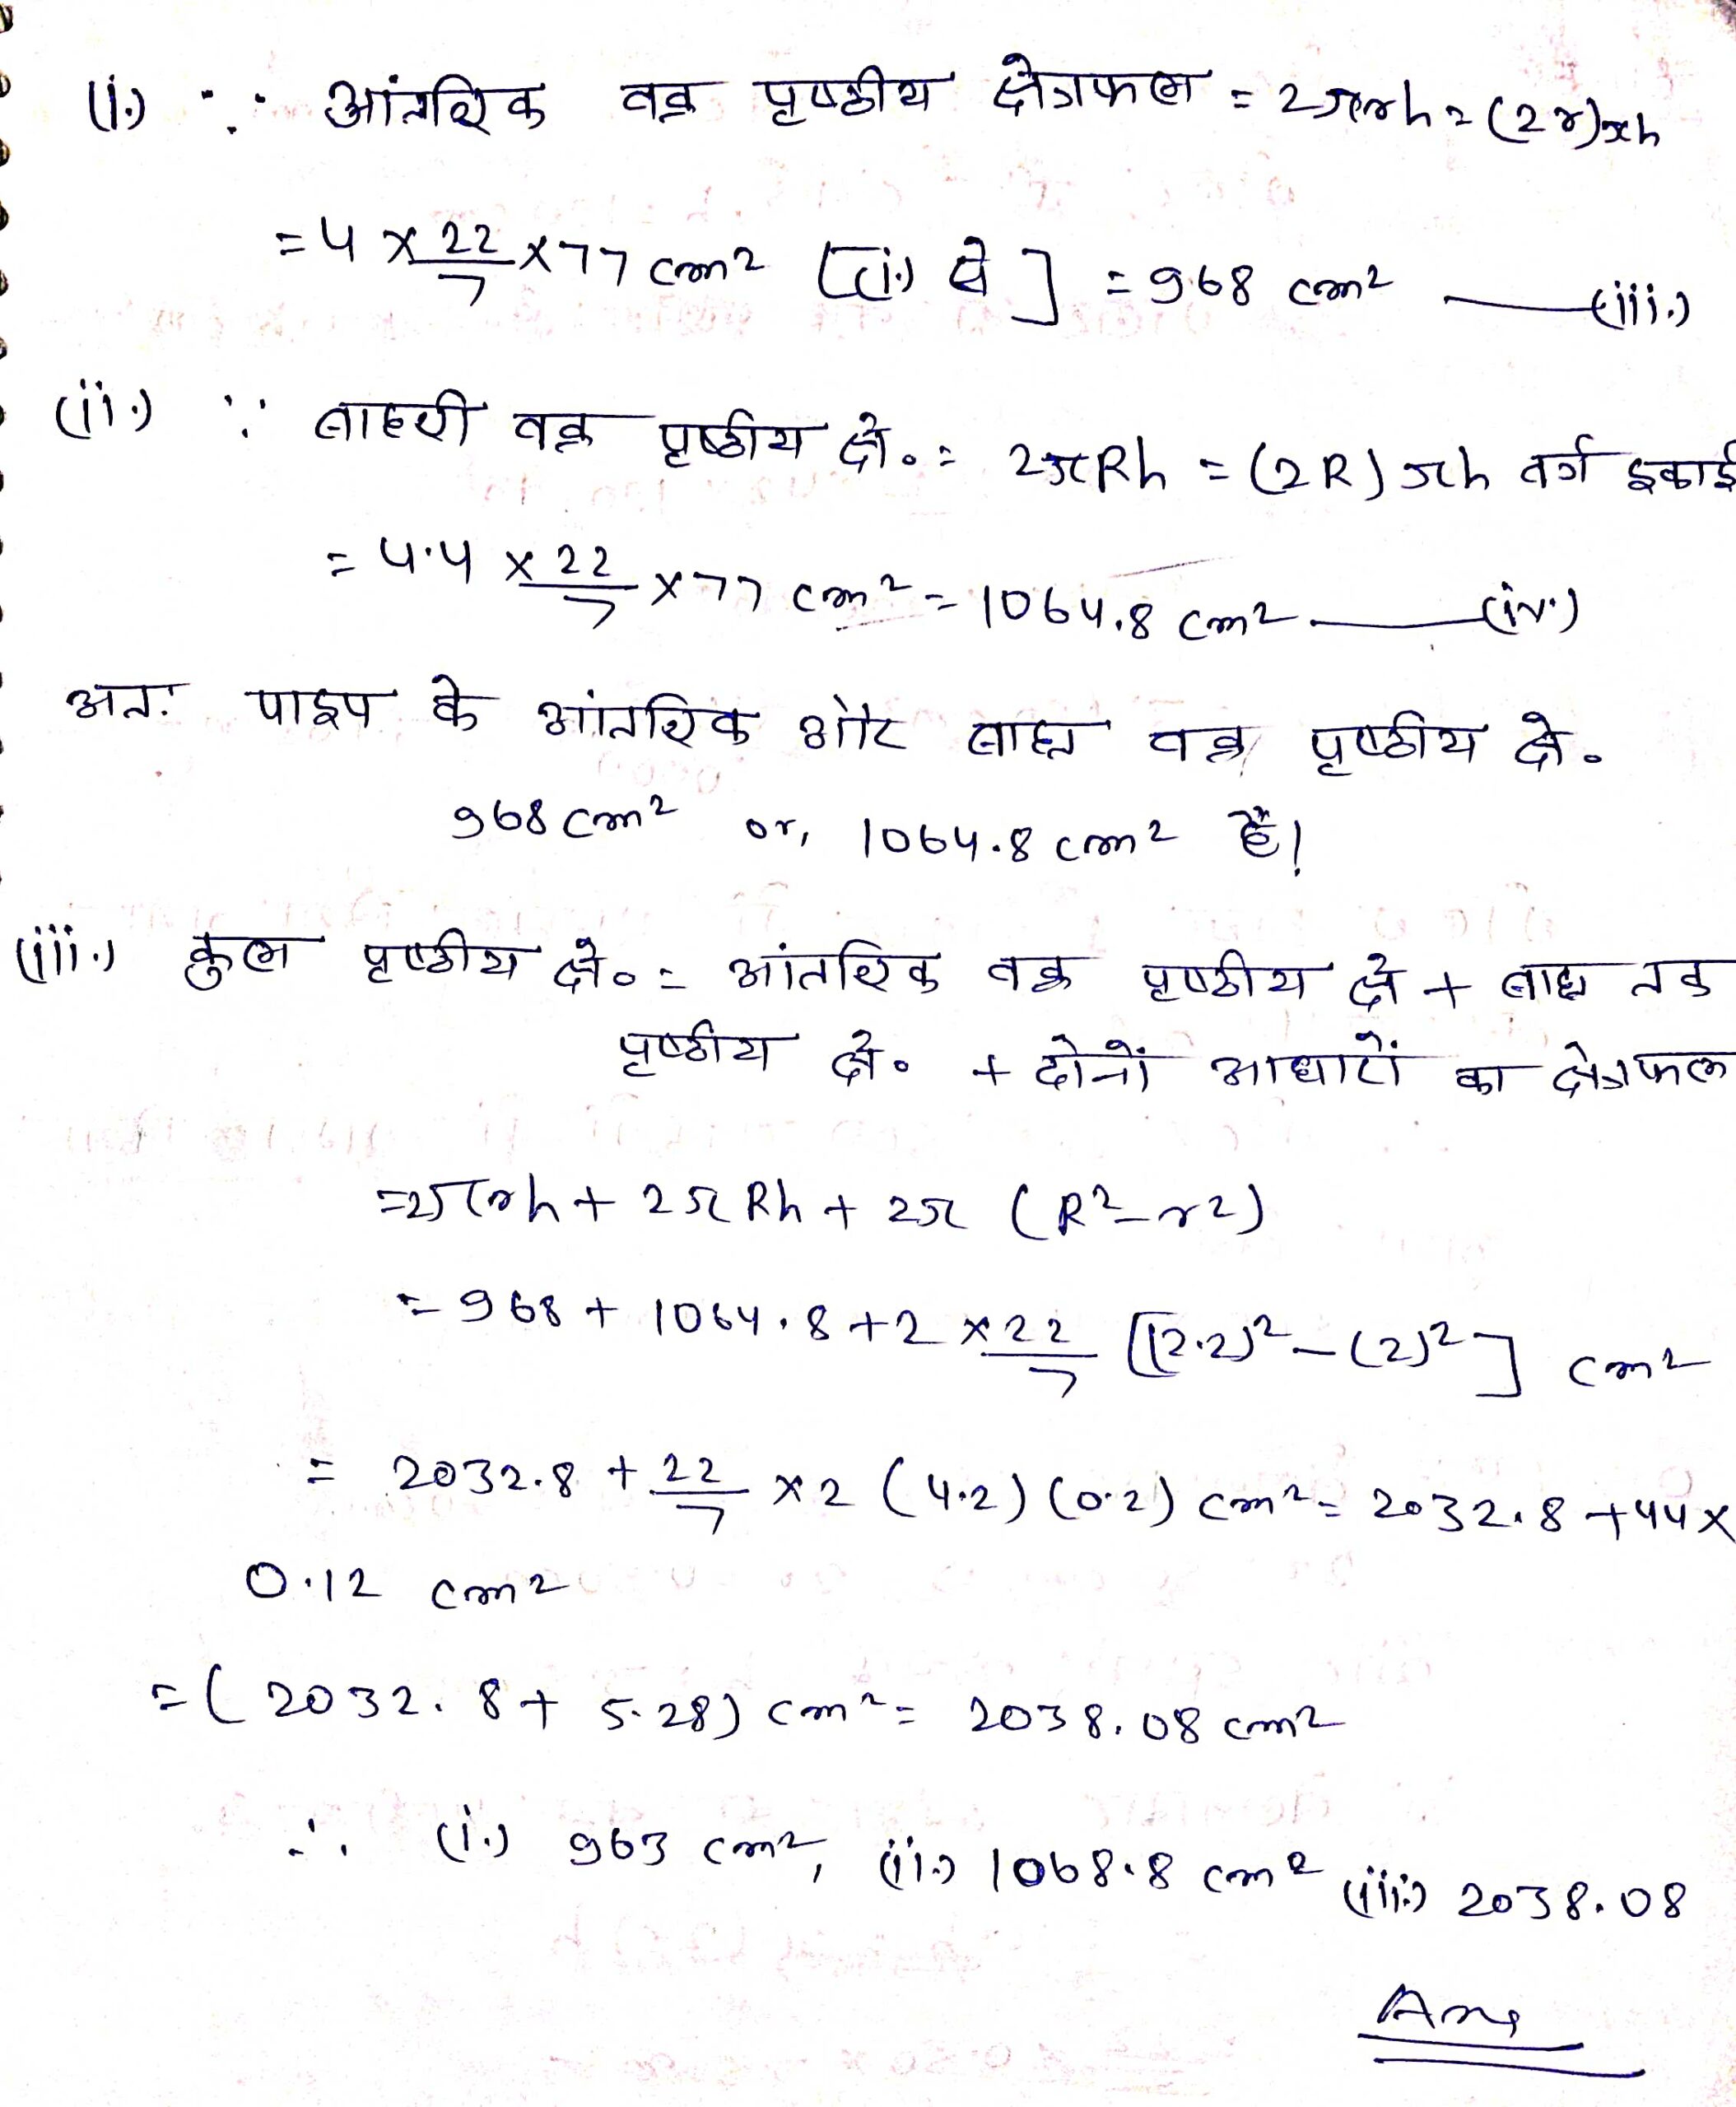 (i.) ∵ आंतरिक वक्र पृष्ठीय क्षेत्रफल = 2πrh = (2r)πh
= 4 × 22/7 × 77 cm2 [(i.) से] = 968 cm2 —— (iii.)
(ii.) ∵ बाहरी वक्र पृष्ठीय क्षे॰ = 2πRh = (2R)πh वर्ग इकाई
= 4.4 × 22/7 × 77 cm2 = 1064.8 cm2 —— (iv.)
अतः पाइप के आंतरिक और बाह्य वक्र पृष्ठीय क्षे॰
968 cm2 or, 1064.8 cm2 हैं।
(iii.) कुल पृष्ठीय क्षे॰ = आंतरिक वक्र पृष्ठीय क्षे + बाह्य वक्र
पृष्ठीय क्षे॰ + दोनों आधारों का क्षेत्रफल
= 2πrh + 2πRh + 2π (R2 - r2)
= 968 + 1064.8 + 2 × 22/7 [(2.2)2 - (2)2] cm2
= 2032.8 + 22/7 × 2 (4.2) (0.2) cm2 = 2032.8 + 44 ×
0.12 cm2
= (2032.8 + 5.28) cm2 = 2038.08 cm2
∴ (i.) 963 cm2, (ii.) 1068.8 cm2 (iii.) 2038.08
Ans